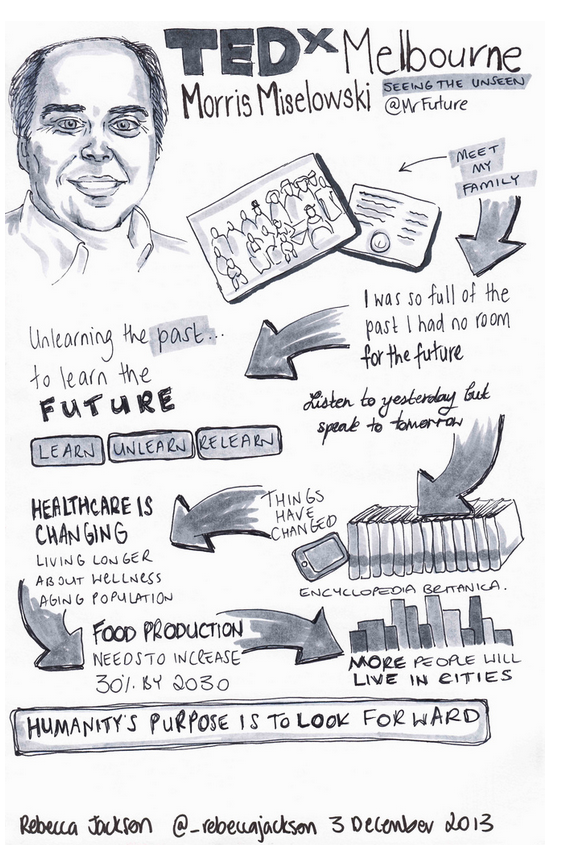 TEDx Melbourne
Morris Miselowski
SEEING THE UNSEEN
@MrFuture
MEET
MY
FAMILY
I was so full of the
past I had no room
for the future
Unlearning the past...
to learn the
FUTURE
LEARN UNLEARN RELEARN
Listen to yesterday but
speak to tomorrow
THINGS
HAVE
CHANGED
ENCYCLOPEDIA BRITANICA.
HEALTHCARE IS
CHANGING
LIVING LONGER
ABOUT WELLNESS
AGING POPULATION
FOOD PRODUCTION
NEEDS TO INCREASE
30% BY 2030
MORE PEOPLE WILL
LIVE IN CITIES
HUMANITY'S PURPOSE IS TO LOOK FORWARD
Rebecca Jackson @_rebeccajackson 3 December 2013